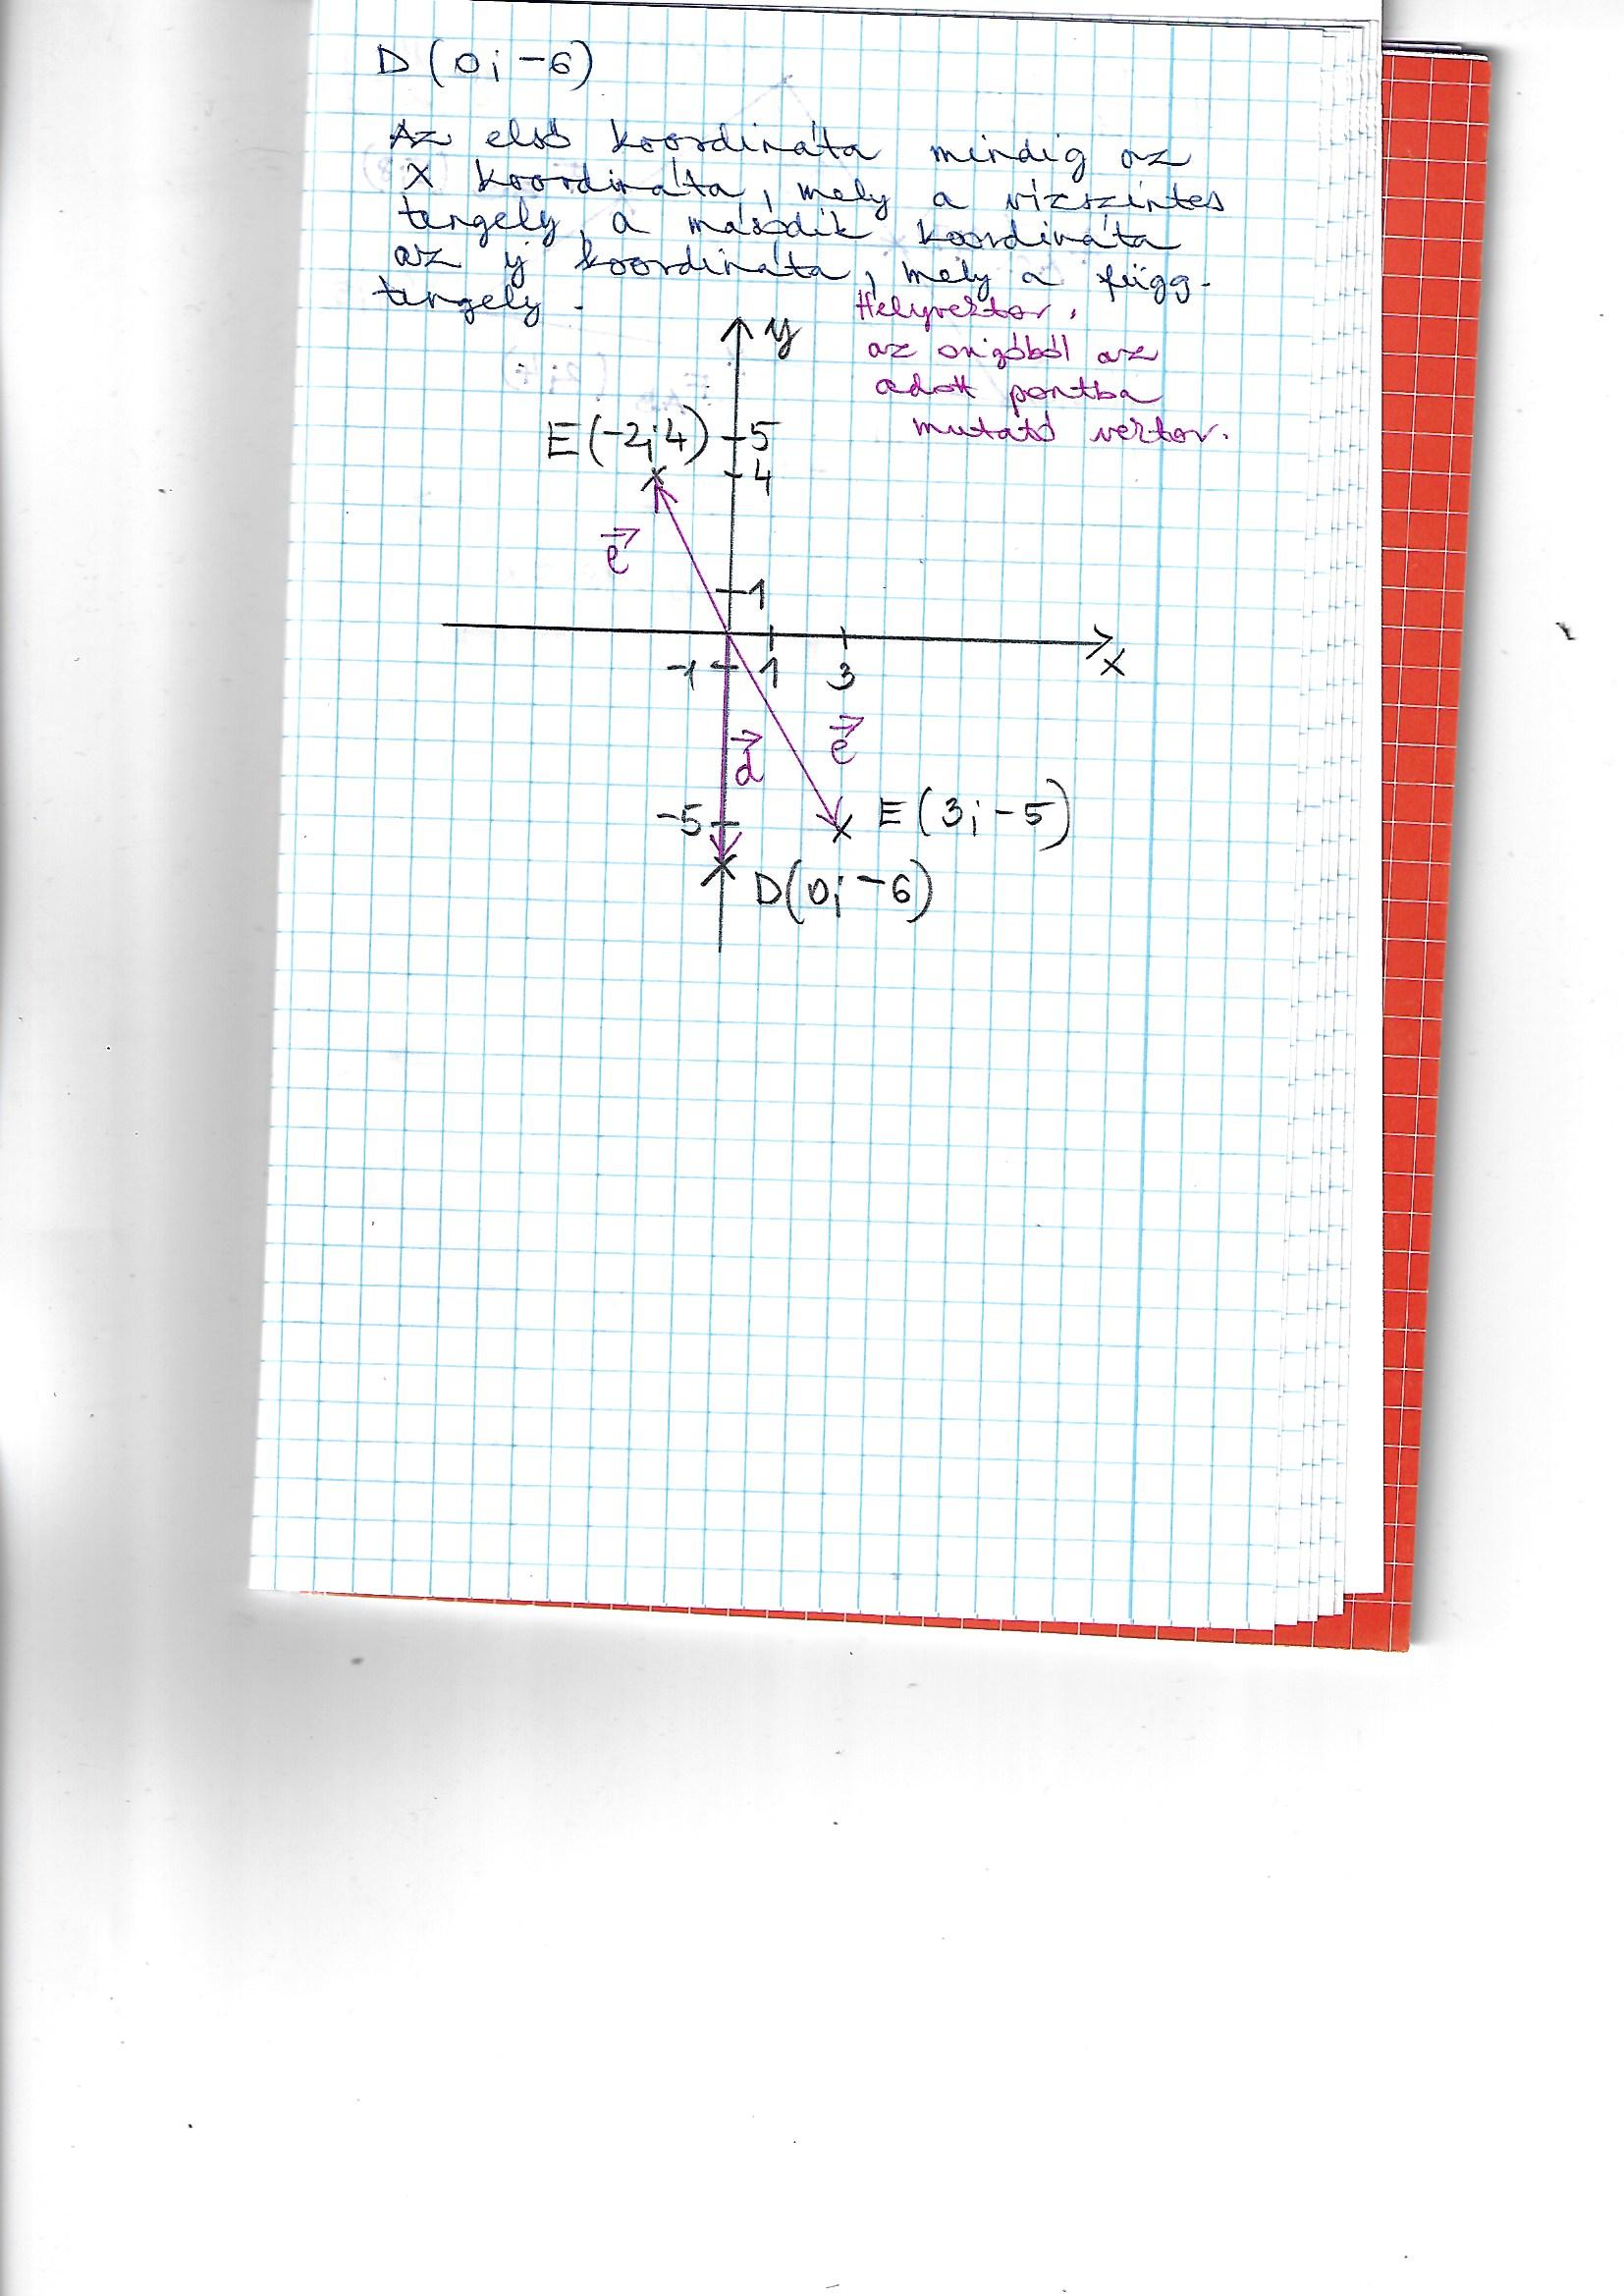 D (0; -6)
Az első koordináta mindig az
x koordináta, mely a vízszintes
tengely, a második koordináta
az y koordináta, mely a függ.
tengely.
Helyvektor:
az origóból az
adott pontba
mutató vektor.
y
E(-2;4)
5
4
e
1
x
-1
1
3
d
e
-5
E(3;-5)
D(0;-6)